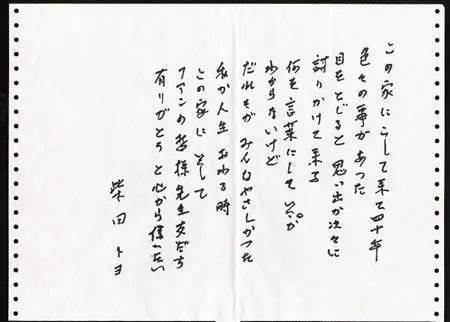 この家にこして来て四十年
色々の事があった
目をとじると思い出が次々に
語りかけて来る
何を言葉にして
わからないけど
だれもが みんなやさしかった
私が人生 おわる時
この家に そして
ファンの皆様先生友だち
有りがとう と心から たい
柴田トヨ